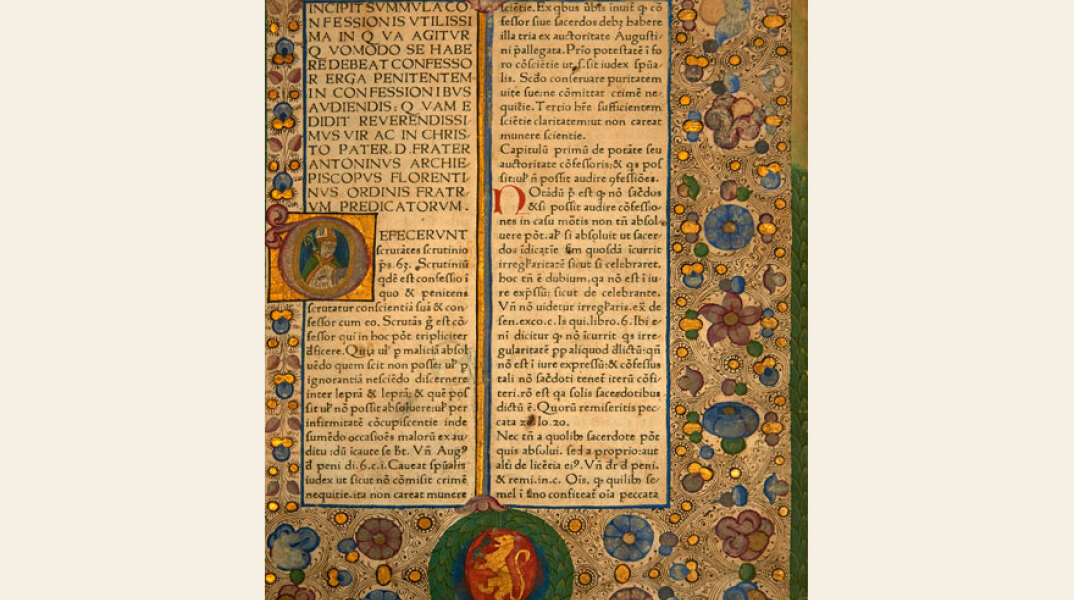 INCIPIT SVMMVLA CO
NFESSIONIS VTILISSI
MA IN Q VA AGITVR
Q VOMODO SE HABE
RE DEBEAT CONFESSO
R ERGA PENITENTEM
IN CONFESSIONIBVS
AVDIENDIS: Q VAM E
DIDIT REVERENDISSI
MVS VIR AC IN CHRIS
TO PATER. D. FRATER
ANTONINVS ARCHIE
PISCOPVS FLORENTI
NVS. ORDINIS FRATR
VM PREDICATORVM.
DEFECERVNT
scrutãtes scrutinio
p̃s. 63. Scrutiniũ
qdẽ est confessio ĩ
quo & penitens
scrutatur conscientiã suã & con-
fessor cum eo. Scrutãs g̃ est cõ-
fessor qui in hoc põt tripliciter
dficere. Quia ul' p maliciã absol
uẽdo quem scit non posse: ul' p
ignorantiã nesciẽdo discernere
inter leprã & leprã: & quẽ pos
sit ul' nõ possit absoluere: ul' per
infirmitatẽ cõcupiscentie inde
sumẽdo occasiões malorũ ex au-
ditu: dũ icaute se ht. Vñ Aug9
d peni di. 6. c. i. Caueat sp̃ualis
iudex ut sicut nõ cõmisit crimẽ
nequitie. ita non careat munere
sciẽtie. Ex qbus ũbis inuit̃ q cõ
fessor siue sacerdos debʒ habere
illa tria ex auctoritate Augusti-
ni p̃allegata. Prĩo potestatẽ ĩ fo
ro cõsciẽtie ut. s. sit iudex sp̃ua-
lis. Scdo conseruare puritatem
uite sue: ne cõmittat crimẽ ne-
quitie. Tertio hr̃e sufficientem
sciẽtie claritatem: ut non careat
munere scientie.
Capitulũ primũ de potãte seu
auctoritate cõfessoris: & qs pos
sit: ul' ñ possit audire 9fessiões.
NOtãdũ p̃ est q nõ sac̃dos
&si possit audire cõfessio-
nes in casu mõtis non tñ absol
uere põt. al' si absoluit ut sacer-
dos ĩdicatiẽ s̃m quosdã ĩcurrit
irregl'aritatẽ sicut si celebraret.
hoc tñ ẽ dubium. qa nõ est ĩ iu-
re exp̃ssũ: sicut de celebrante.
Vñ nõ uidetur irregl'aris. ex̃ de
sen. exco. c. Is qui. libro. 6. Ibi e-
nĩ dicitur q nõ ĩcurrit qs irre-
gularitatẽ pp aliquod dlictũ: qñ
nõ est ĩ iure expressũ: & cõfessus
tali nõ sac̃doti tenet̃ iterũ cõfi-
teri. rõ est qa solis sacerdotibus
dictũ ẽ. Quorũ remiseritis pec-
cata Io. 20.
Nec tñ a quolibʒ sacerdote põt
quis absolui. sed a proprio: aut
alt̃i de licẽtia ei9. Vñ dr̃ d peni.
& remi. in. c. Oĩs. q quilibʒ se-
mel ĩ ãno confiteat̃ oĩa peccata